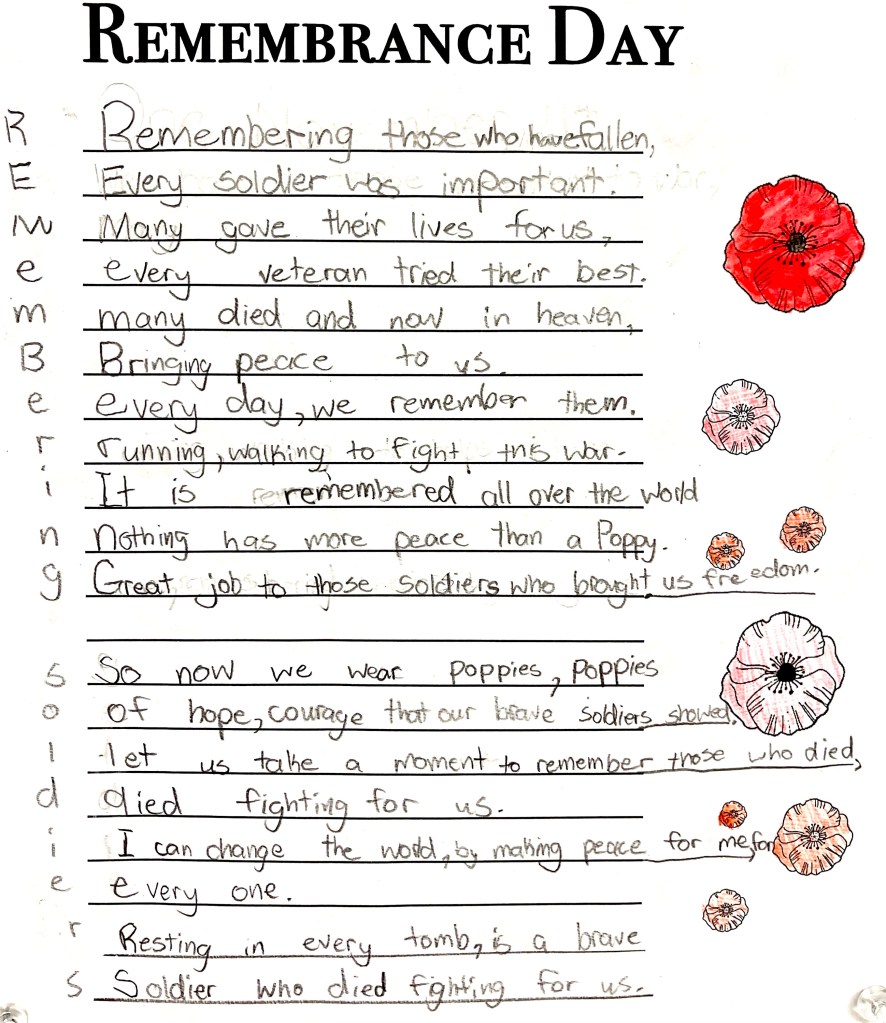 REMEMBRANCE DAY
R Remembering those who have fallen,
E Every soldier was important.
M Many gave their lives for us,
e every veteran tried their best.
m many died and now in heaven,
B Bringing peace to us.
e every day, we remember them.
r running, walking to fight this war.
i It is remembered all over the world
n nothing has more peace than a Poppy.
g Great job to those soldiers who brought us freedom.
s So now we wear poppies, poppies
o of hope, courage that our brave soldiers showed,
l let us take a moment to remember those who died,
d died fighting for us.
i I can change the world, by making peace for me, for
e every one.
r Resting in every tomb, is a brave
s Soldier who died fighting for us.